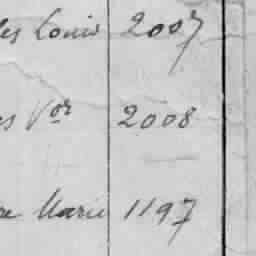 les Louis 2007
es Vor 2008
re Marie 1197